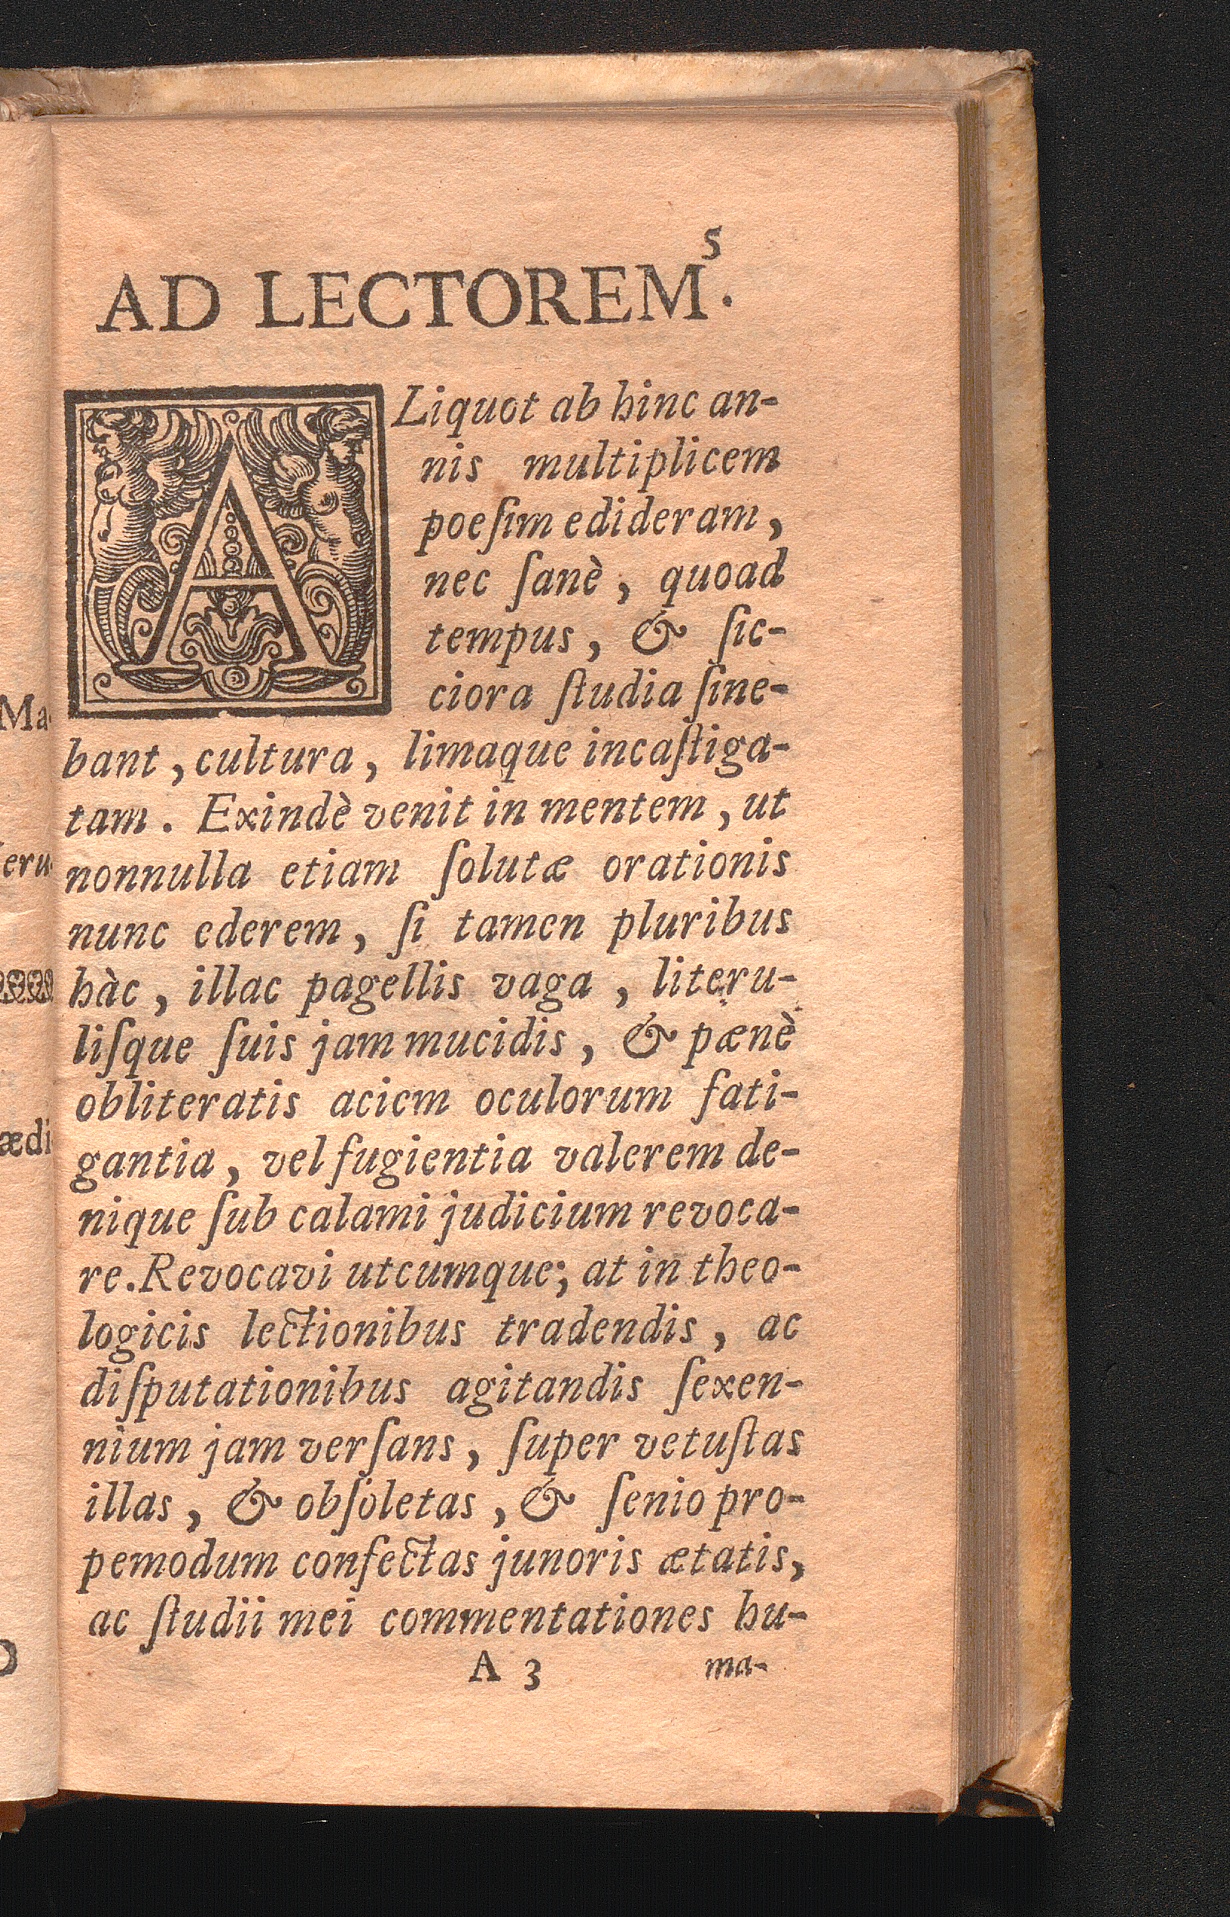 5
AD LECTOREM.
ALiquot ab hinc an-
nis multiplicem
poeſim edideram,
nec ſanè, quoad
tempus, & ſic-
ciora ſtudia ſine-
bant, cultura, limaque incaſtiga-
tam. Exindè venit in mentem, ut
nonnulla etiam ſolutæ orationis
nunc ederem, ſi tamen pluribus
hàc, illac pagellis vaga, literu-
liſque ſuis jam mucidis, & pænè
obliteratis aciem oculorum fati-
gantia, vel fugientia valerem de-
nique ſub calami judicium revoca-
re. Revocavi utcumque; at in theo-
logicis lectionibus tradendis, ac
diſputationibus agitandis ſexen-
nium jam verſans, ſuper vetuſtas
illas, & obſoletas, & ſenio pro-
pemodum confectas junoris ætatis,
ac ſtudii mei commentationes hu-
A 3 ma-
Ma
eru
ædi